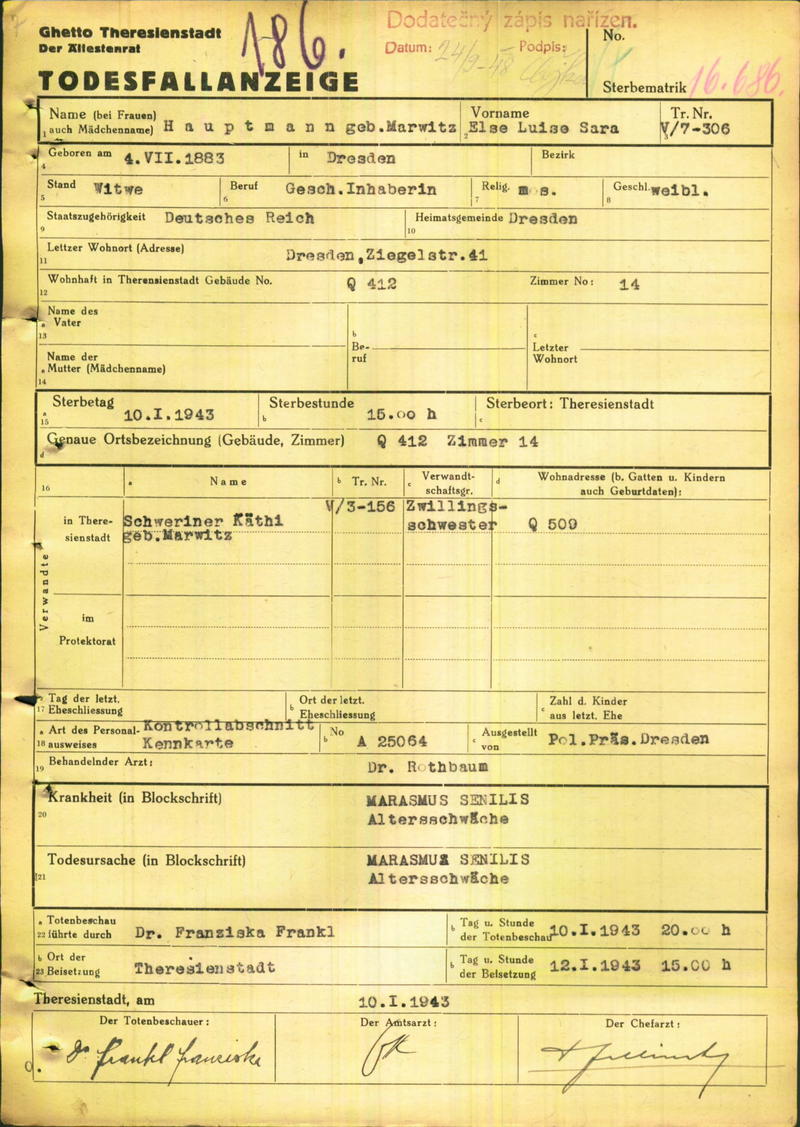 Ghetto Theresienstadt
Der Ältestenrat
TODESFALLANZEIGE
186.
Dodatečný zápis nařízen.
Datum: 24/9-48 Podpis:
No.
Sterbematrik 16.686.
Name (bei Frauen)
1 auch Mädchenname) Hauptmann geb.Marwitz
Vorname
2 Else Luise Sara
Tr. Nr.
3 V/7-306
Geboren am 4.VII.1883
4
in Dresden
Bezirk
Stand Witwe
5
Beruf Gesch.Inhaberin
6
Relig. mos.
7
Geschl. weibl.
8
Staatszugehörigkeit Deutsches Reich
9
Heimatsgemeinde Dresden
10
Lettzer Wohnort (Adresse)
11
Dresden,Ziegelstr.41
Wohnhaft in Theresienstadt Gebäude No. Q 412
12
Zimmer No: 14
Name des
a Vater
13
b
Be-
ruf
c
Letzter
Wohnort
Name der
a Mutter (Mädchenname)
14
Sterbetag
a 10.I.1943
15
Sterbestunde
b 15.00 h
Sterbeort: Theresienstadt
c
Genaue Ortsbezeichnung (Gebäude, Zimmer) Q 412 Zimmer 14
d
16
a Name
b Tr. Nr.
c Verwandt-
schaftsgr.
d Wohnadresse (b. Gatten u. Kindern
auch Geburtdaten):
Verwandte
in There-
sienstadt
Schweriner Käthi
geb.Marwitz
V/3-156
Zwillings-
schwester
Q 509
im
Protektorat
a Tag der letzt.
17 Eheschliessung
b Ort der letzt.
Eheschliessung
c Zahl d. Kinder
aus letzt. Ehe
a Art des Personal-
18 ausweises
Kontrollabschnitt
Kennkarte
b No
A 25064
c Ausgestellt
von
Pol.Präs.Dresden
Behandelnder Arzt:
19
Dr. Rothbaum
Krankheit (in Blockschrift)
20
MARASMUS SENILIS
Altersschwäche
Todesursache (in Blockschrift)
21
MARASMUS SENILIS
Altersschwäche
a Totenbeschau
22 führte durch Dr. Franziska Frankl
b Tag u. Stunde
der Totenbeschau 10.I.1943 20.00 h
b Ort der
23 Beisetzung Theresienstadt
b Tag u. Stunde
der Beisetzung 12.I.1943 15.00 h
Theresienstadt, am 10.I.1943
Der Totenbeschauer:
Dr Frankl Franziska
Der Amtsarzt:
Der Chefarzt: